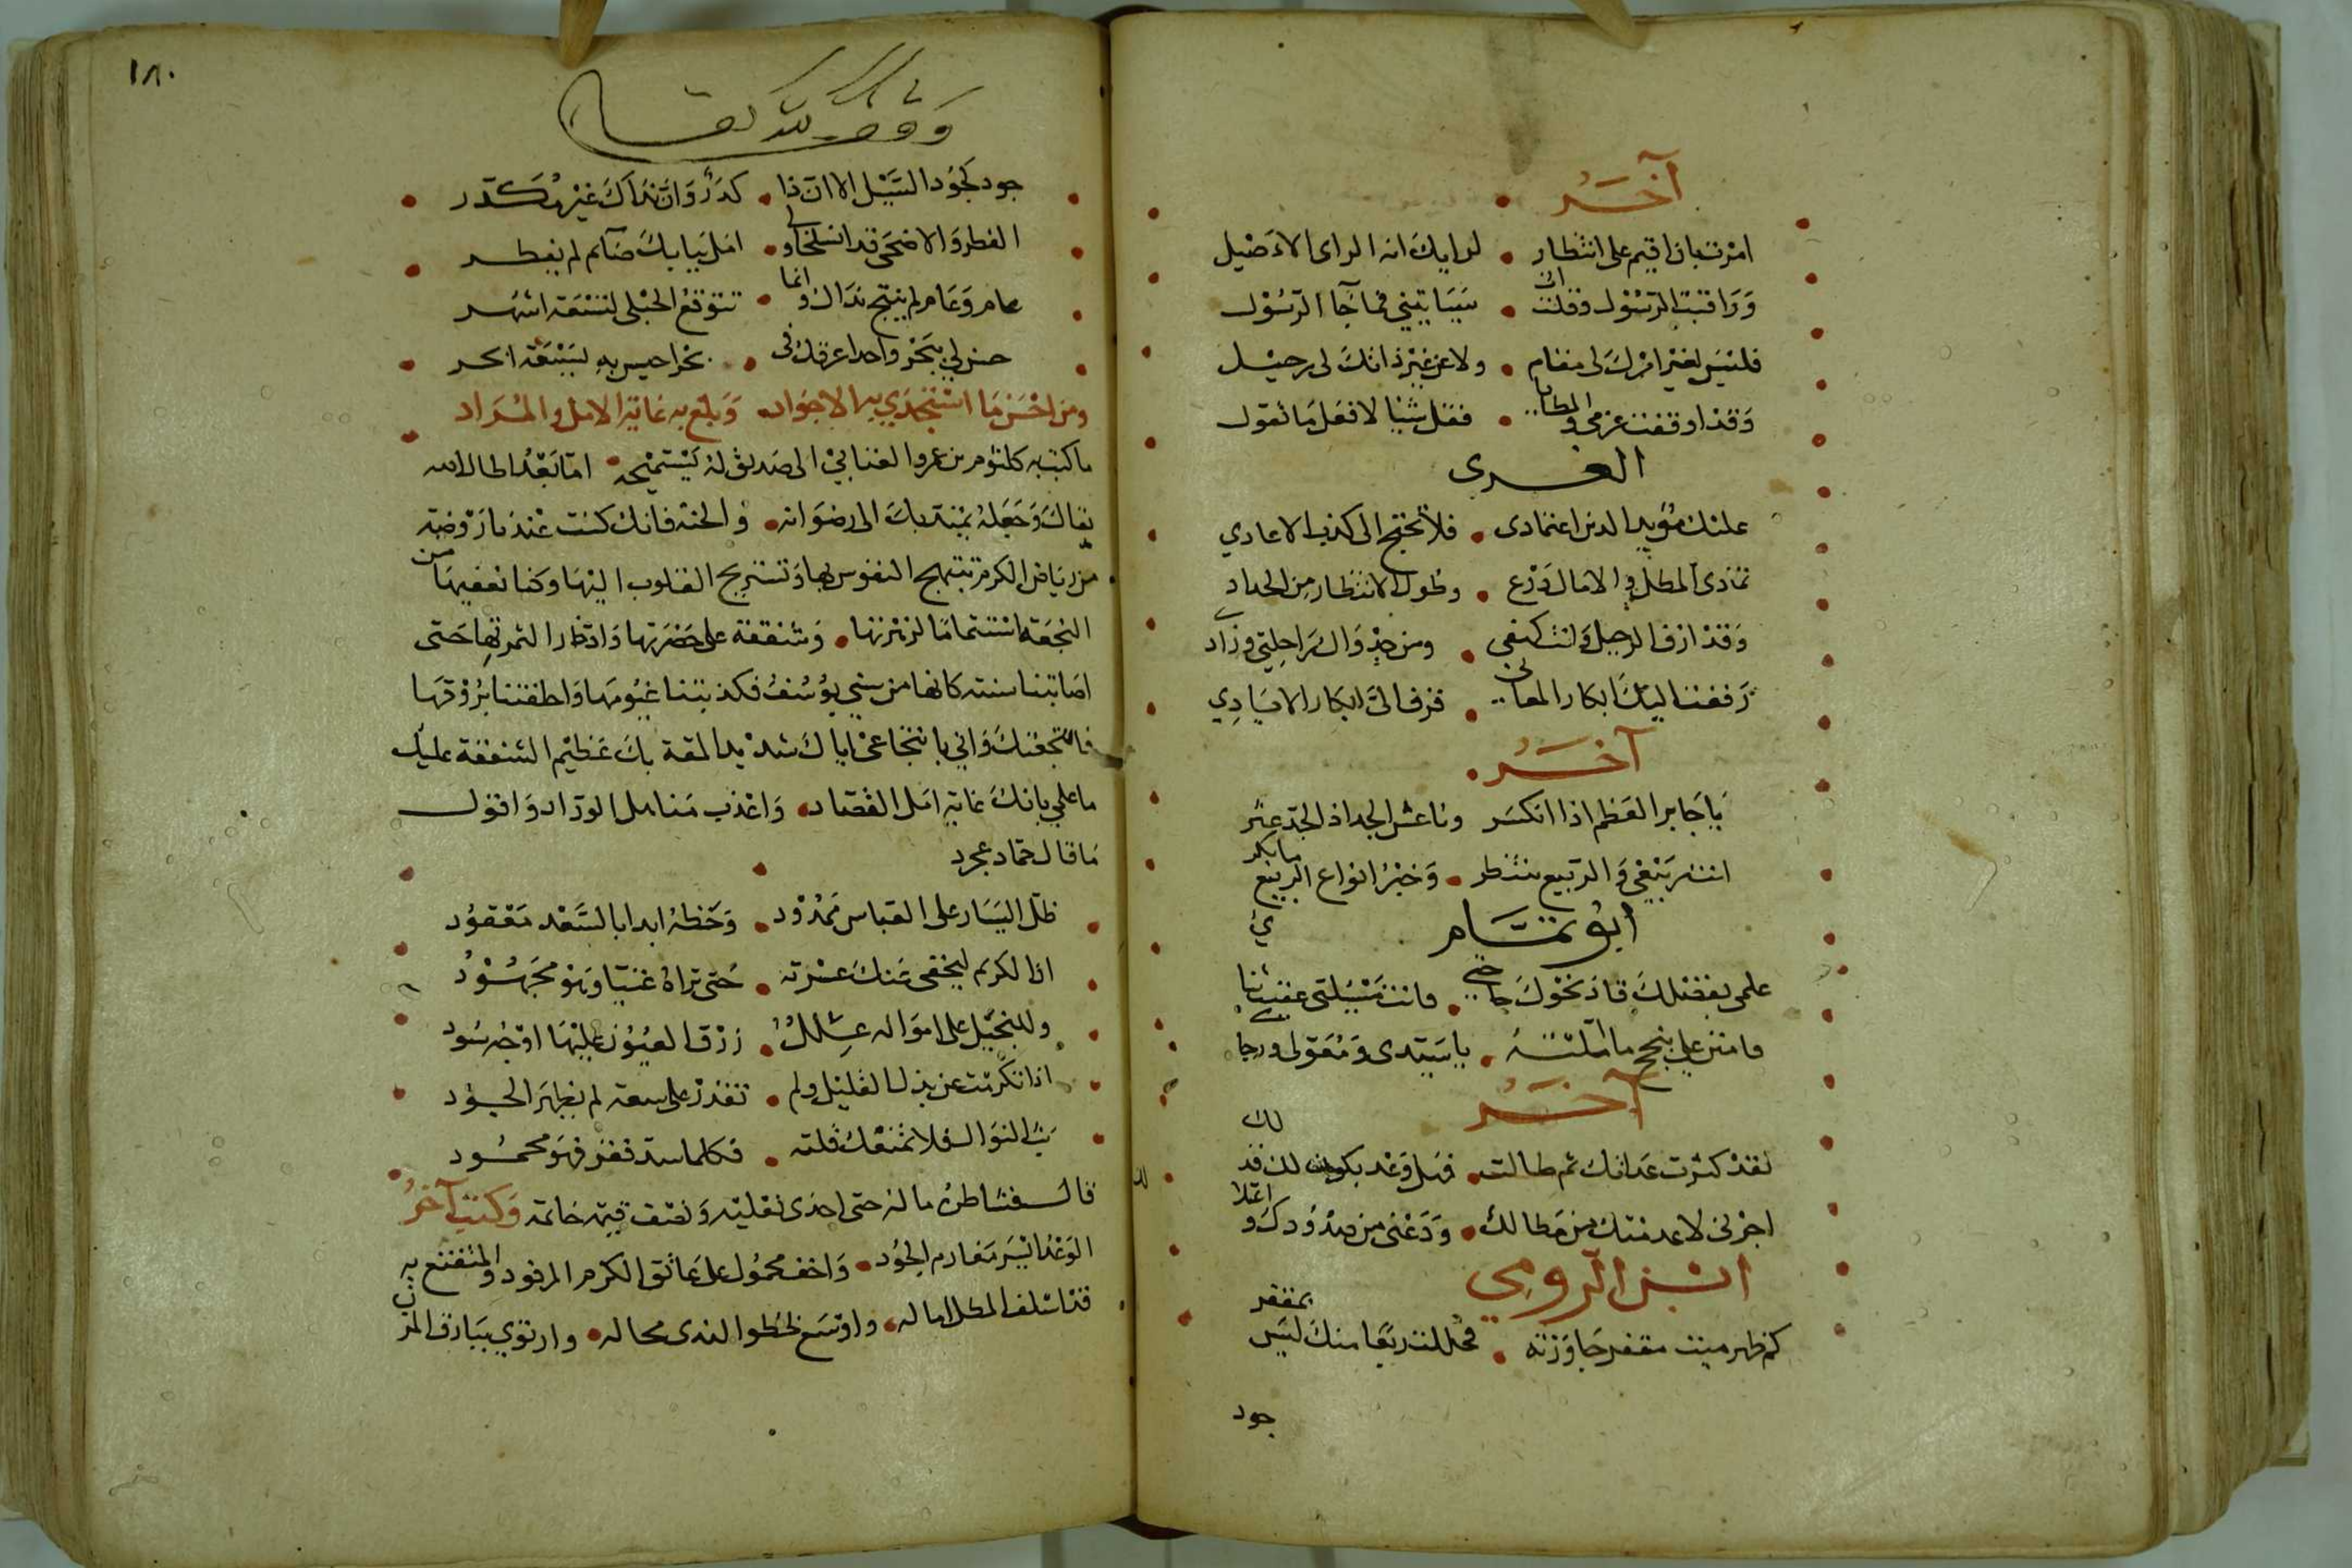 آخر
امرت بان اقيم على انتظار • لرايك انه الراى الاصيل
وراقبت الرسول وقلت ان • سياتيني فما جآ الرسول
فليس لغير امرك لى مقام • ولا عن غير ذاتك لى رحيل
وقد اوقفت عزمى والمطايا • فقل شيا لافعل ما تقول
الغزى
عليك مؤيد الدين اعتمادى • فلا تحتج الى كذب الاعادي
تمادى المطل والامال زرع • وطول الانتظار من الجداد
وقد ازف الرحيل وانت كهفى • ومن جدواك راحلتي وزادي
زففنا اليك ابكار المعانى • فزف الى ابكار الايادي
آخر
يا جابر العظم اذا انكسر وناعش الجد اذ الجد عثر
انت ربيعى والربيع ينتظر • وخير انواع الربيع ما بكر
ابو تمام
علمى بفضلك قاد نحوك حاجتى • وانت مسيلتى عقيب ثنايى
فامنن على بنجح ما املته • يا سيدى ومعولى ورجايى
آخر
لقد كثرت عداتك ثم طالت • فهل وعد يكون لك قد
لك
اجرنى لا عدمتك من مطالك • ودعنى من صدودك واعتلا
ابن الرومي
كم ظهر ميت مقفر جاوزته • فحللت ربعا منك ليس بمقفر
جود
١٨٠
وقف لله تعالى
جود كجود السيل الا ان ذا • كدر وان نداك غير مكدر
الفطر والاضحى قد انسلخا ولى • امل ببابك صآيم لم يفطر
عام وعام لم ينتج نداك وانما • تتوقع الحبلى لتسعة اشهر
حش لي ببحر واحد اغرقك فى • بحر احيس به لسبعة ابحر
ومن احسن ما استجدي به الاجواد • وبلغ به غاية الامل والمراد
ما كتب به كلثوم بن عمرو العتابي الى صديق له يستميحه • اما بعد اطال الله
بقاك وجعله يمتد بك الى رضوانه • والجنة فانك كنت عندنا روضة
من رياض الكرم تبتهج النفوس بها وتستريح القلوب اليها وكنا نعفيها من
النجعة استتماما لزهرتها • وشفقة على خضرتها وادخارا لثمرتها حتى
اصابتنا سنة كانها من سني يوسف فكذبتنا غيومها واخلفتنا بروقها
فانتجعتك واني بانتجاعى اياك شديد المقة بك عظيم الشفقة عليك
ما علمي بانك غاية امل القصاد • واعذب مناهل الوراد واقول
ما قال حماد عجرد
ظل اليسار على العباس ممدود • وحظه ابدا بالسعد معقود
ان الكريم ليخفى عنك عسرته • حتى تراه غنيا وهو مجهود
وللبخيل على امواله علل • زرق العيون عليها اوجه سود
اذا تكرمت عن بذل القليل ولم • تقدر على سعة لم يظهر الجود
بث النوال فلا تمنعك قلته • فكلما سد فقر فهو محمود
قال فشاطره ماله حتى احدى نعليه ونصف قيمة خاتمه وكتب آخر
الوعد ايسر مغارم الجود • واخف محمول على عاتق الكرم المرفود والمنتفع به
قد اسلف المطل اماله • واوسع لخطوا الندى مجاله • وارتوي ببارق المزن